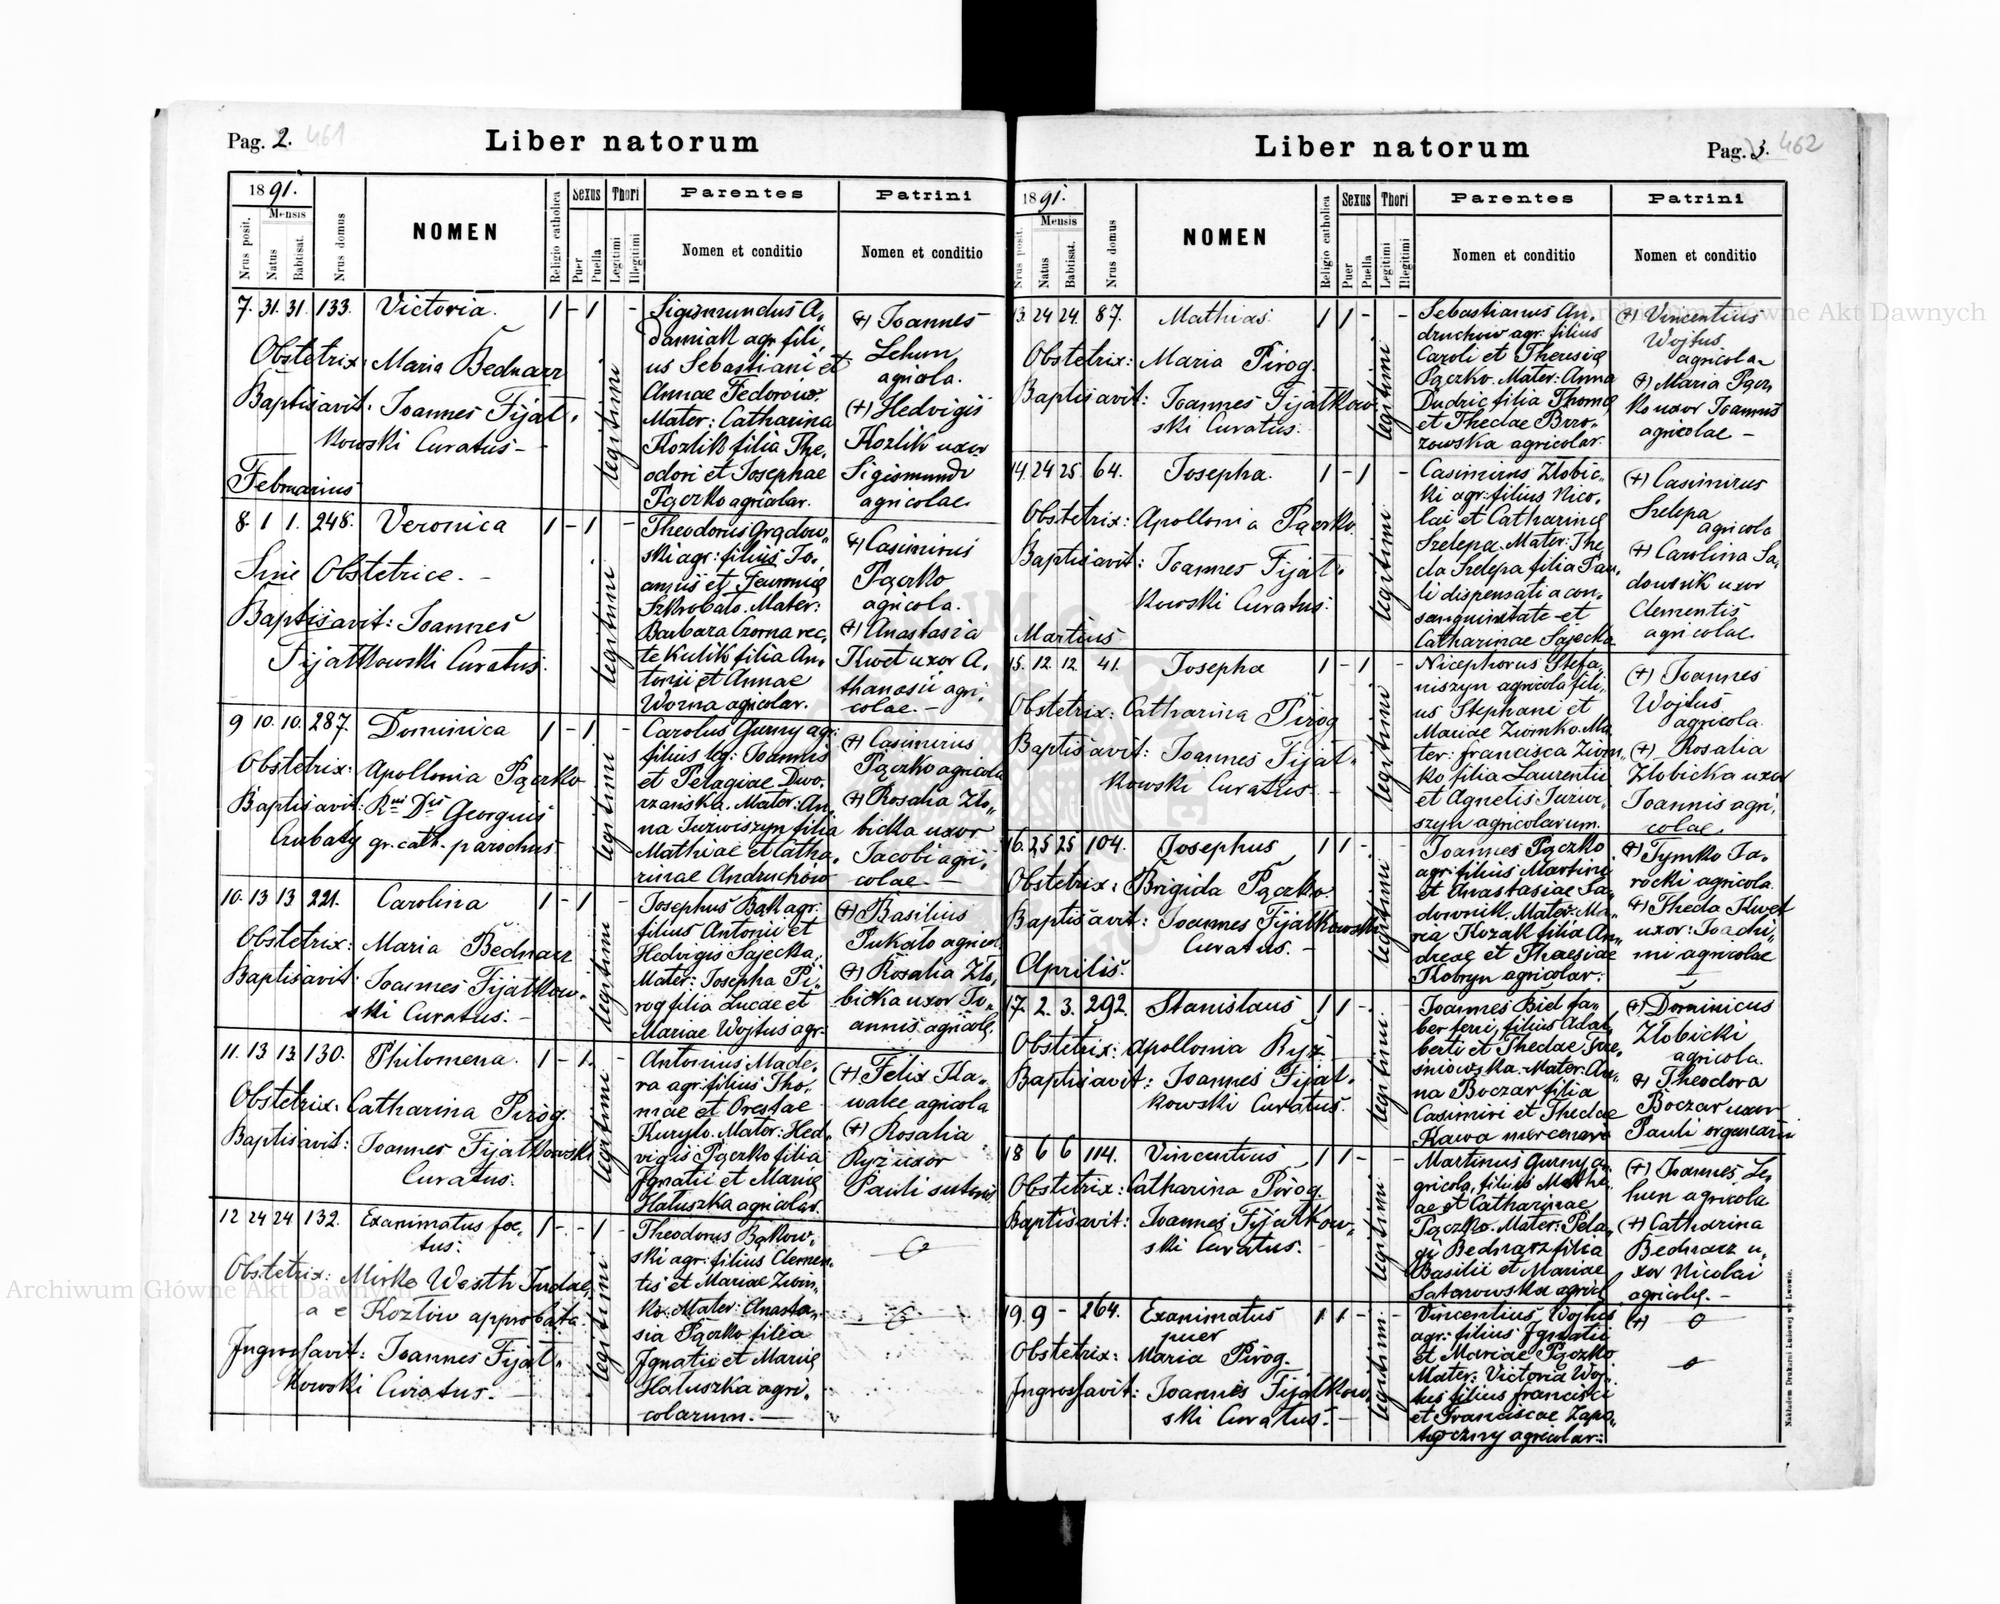 Pag. 2. 461
Liber natorum
1891.
Nrus posit.
Mensis
Natus
Babtisat.
Nrus domus
NOMEN
Religio catholica
Sexus
Puer
Puella
Thori
Legitimi
Illegitimi
Parentes
Nomen et conditio
Patrini
Nomen et conditio
7. 31. 31. 133. Victoria. 1 - 1 -
Obstetrix: Maria Bednarz
Baptisavit: Joannes Fijał-
kowski Curatus -
legitimi
Sigismundus A-
damiak agr. fili-
us Sebastiani et
Annae Fedorow.
Mater: Catharina
Kozlik filia The-
odori et Josephae
Pączko agricolar.
(+) Joannes
Lehun
agricola.
(+) Hedvigis
Kozlik uxor
Sigismundi
agricolae
Februarius
8. 1 1. 248. Veronica 1 - 1 -
Sine Obstetrice. -
Baptisavit: Joannes
Fijałkowski Curatus:
legitimi
Theodorus Grądow-
ski agr: filius Jo-
annis et Feuronia
Szkrobało. Mater:
Barbara Czorna rec-
te Kulik filia An-
tonii et Annae
Worna agricolar.
(+) Casimirus
Pączko
agricola.
(+) Anastasia
Kwet uxor A-
thanasii agri-
colae. -
9 10. 10. 287. Dominica 1 - 1. -
Obstetrix: Apollonia Pączko
Baptisavit: Rmi Dis Georguis
Czubaty gr. cath. parochus
legitimi
Carolus Gurny agr:
filius leg: Joannis
et Pelagiae Dwo-
rzanska. Mater: An-
na Juzwiszyn filia
Mathiae et Catha-
rinae Andruchow
(+) Casimirius
Pączko agricola
(+) Rosalia Zło-
bicka uxor
Jacobi agri-
colae. -
10. 13 13 221. Carolina 1 - 1 -
Obstetrix: Maria Bednarz
Baptisavit: Joannes Fijałkow-
ski Curatus. -
legitimi
Josephus Bąk agr:
filius Antonii et
Hedvigis Sajecka.
Mater: Josepha Pi-
rog filia Lucae et
Mariae Wojtus agr:
(+) Basilius
Pukało agricol.
(+) Rosalia Zło-
bicka uxor Jo-
annis agricole.
11. 13 13 130. Philomena. 1 - 1. -
Obstetrix: Catharina Pirog.
Baptisavit: Joannes Fijałkowski
Curatus.
legitimi
Antonius Made-
ra agr: filius Tho-
mae et Orestae
Kuryło. Mater: Hed-
vigis Pączko filia
Ignatii et Mariae
Hałuszka agricolar.
(+) Felix Ka-
walec agricola
(+) Rosalia
Ryż uxor
Pauli sutoris
12 24 24 132. Exanimatus foe-
tus. 1 - - 1 -
Obstetrix: Mirke Westh Judae-
a e Kozlow approbata.
Ingrossavit: Joannes Fijał-
kowski Curatus. -
legitimi
Theodorus Bąkow-
ski agr: filius Clemen-
tis et Mariae Ziom-
ko. Mater: Anasta-
sia Pączko filia
Ignatii et Mariae
Hałuszka agri-
colarum. -
Liber natorum
Pag. 3. 462
1891.
Nrus posit.
Mensis
Natus
Babtisat.
Nrus domus
NOMEN
Religio catholica
Sexus
Puer
Puella
Thori
Legitimi
Illegitimi
Parentes
Nomen et conditio
Patrini
Nomen et conditio
13. 24 24. 87. Mathias. 1 1 - -
Obstetrix: Maria Pirog.
Baptisavit: Joannes Fijałkow-
ski Curatus.
legitimi
Sebastianus An-
druchow agr: filius
Caroli et Theresiae
Pączko. Mater: Anna
Dudzic filia Thomae
et Theclae Brzo-
zowska agricolar.
(+) Vincentius
Wojtus
agricola
(+) Maria Pącz-
ko uxor Joannis
agricolae -
14. 24 25 64. Josepha. 1 - 1 -
Obstetrix: Apollonia Pączko
Baptisavit: Joannes Fijał-
kowski Curatus.
legitimi
Casimirus Złobic-
ki agr: filius Nico-
lai et Catharinae
Szelepa. Mater: The-
cla Szelepa filia Pau-
li dispensati a con-
sanguinitate et
Catharinae Sajecka
(+) Casimirus
Szelepa
agricola
(+) Carolina Sa-
downik uxor
Clementis
agricolae
Martius
15. 12. 12. 41. Josepha 1 - 1 -
Obstetrix: Catharina Pirog
Baptisavit: Joannes Fijał-
kowski Curatus. -
legitimi
Nicephorus Stefa-
niszyn agricola fili-
us Stephani et
Mariae Ziomko. Ma-
ter: Francisca Ziom-
ko filia Laurentii
et Agnetis Juzwi-
szyn agricolarum.
(+) Joannes
Wojtus
agricola.
(+) Rosalia
Złobicka uxor
Joannis agri-
colae.
16. 25 25 104. Josephus 1 1 -
Obstetrix: Brigida Pączko
Baptisavit: Joannes Fijałkowski
Curatus. -
legitimi
Joannes Pączko
agr: filius Martini
et Anastasiae Sa-
downik. Mater: Ma-
ria Kozak filia An-
dreae et Theresiae
Kobryn agricolar:
(+) Tymko Ja-
rocki agricola.
(+) Thecla Kwet
uxor: Joachi-
mi agricolae
Aprilis.
17. 2. 3. 292. Stanislaus 1 1 - -
Obstetrix: Apollonia Ryż
Baptisavit: Joannes Fijał-
kowski Curatus.
legitimi
Joannes Biel fa-
ber ferri, filius Adal-
berti et Theclae Trze-
śniowska. Mater: An-
na Boczar filia
Casimiri et Theclae
Kawa mercenario
(+) Dominicus
Złobicki
agricola.
(+) Theodora
Boczar uxor
Pauli organarii
18 6 6 114. Vincentius 1 1 - -
Obstetrix: Catharina Pirog.
Baptisavit: Joannes Fijałkow-
ski Curatus. -
legitimi
Martinus Gurny a-
gricola, filius Mathi-
ae et Catharinae
Pączko. Mater: Pela-
gi Bednarz filia
Basilii et Mariae
Satanowska agricol
(+) Joannes Le-
hun agricola
(+) Catharina
Bednarz u-
xor Nicolai
agricolae. -
19. 9 - 264. Exanimatus
puer 1 1 - -
Obstetrix: Maria Pirog.
Ingrossavit: Joannes Fijałkow-
ski Curatus. -
legitimi
Vincentius Wojtus
agr: filius Ignatii
et Mariae Pączko
Mater: Victoria Woj-
tus filius Francisci
et Franciscae Zapo-
toczny agricolar:
(+)
Nakładem Drukarni Ludowej we Lwowie.
Archiwum Główne Akt Dawnych
Archiwum Główne Akt Dawnych